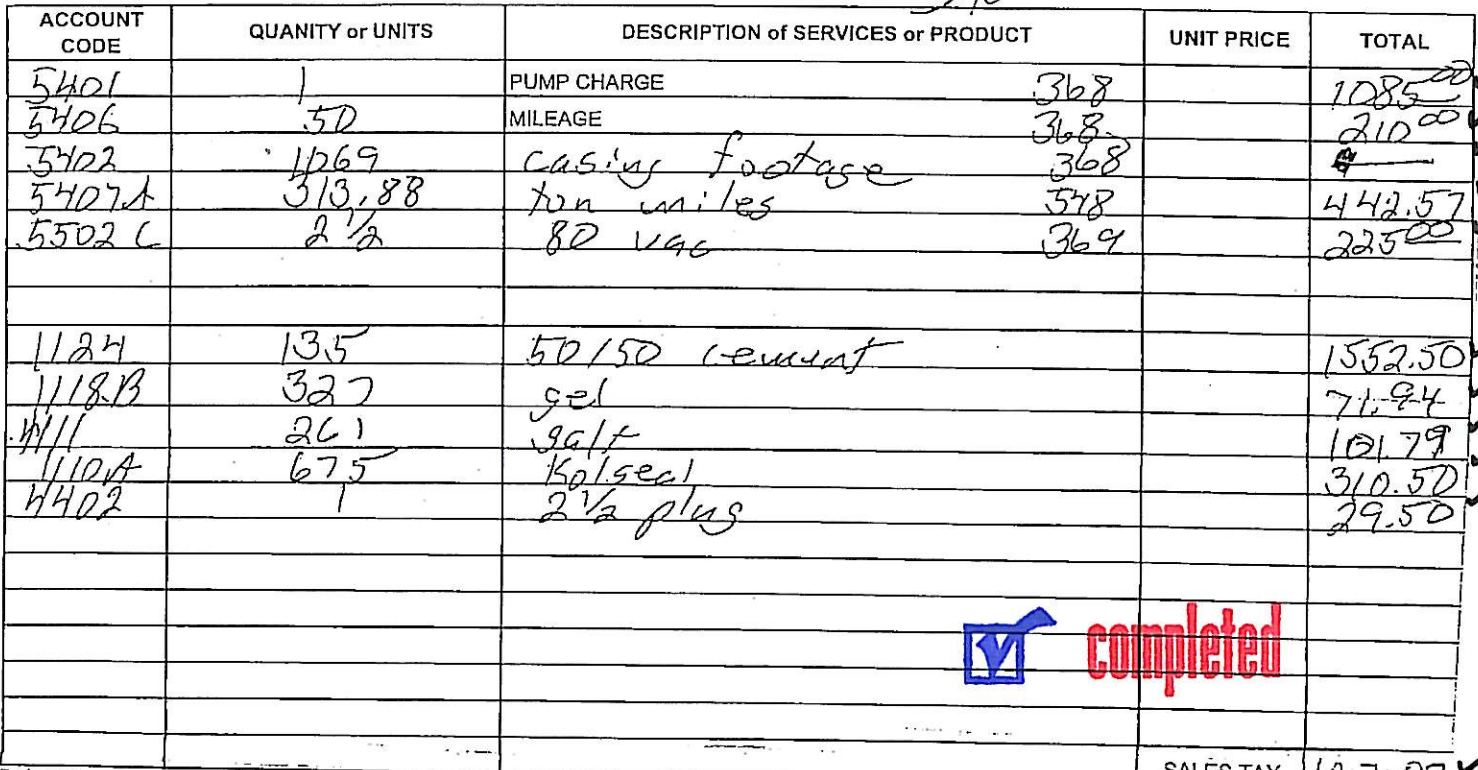 ACCOUNT CODE QUANITY or UNITS DESCRIPTION of SERVICES or PRODUCT UNIT PRICE TOTAL
5401 1 PUMP CHARGE 368 1085.00
5406 50 MILEAGE 368 210 00
5402 1069 casing footage 368
5407A 313.88 ton miles 548 442.57
5502C 2 1/2 80 vac 369 225 00
1124 135 50/50 cement 1552.50
1118B 327 gel 71.94
4111 261 salt 101.79
1110A 675 Kolseal 310.50
4402 1 2 1/2 plug 29.50
completed
SALES TAX